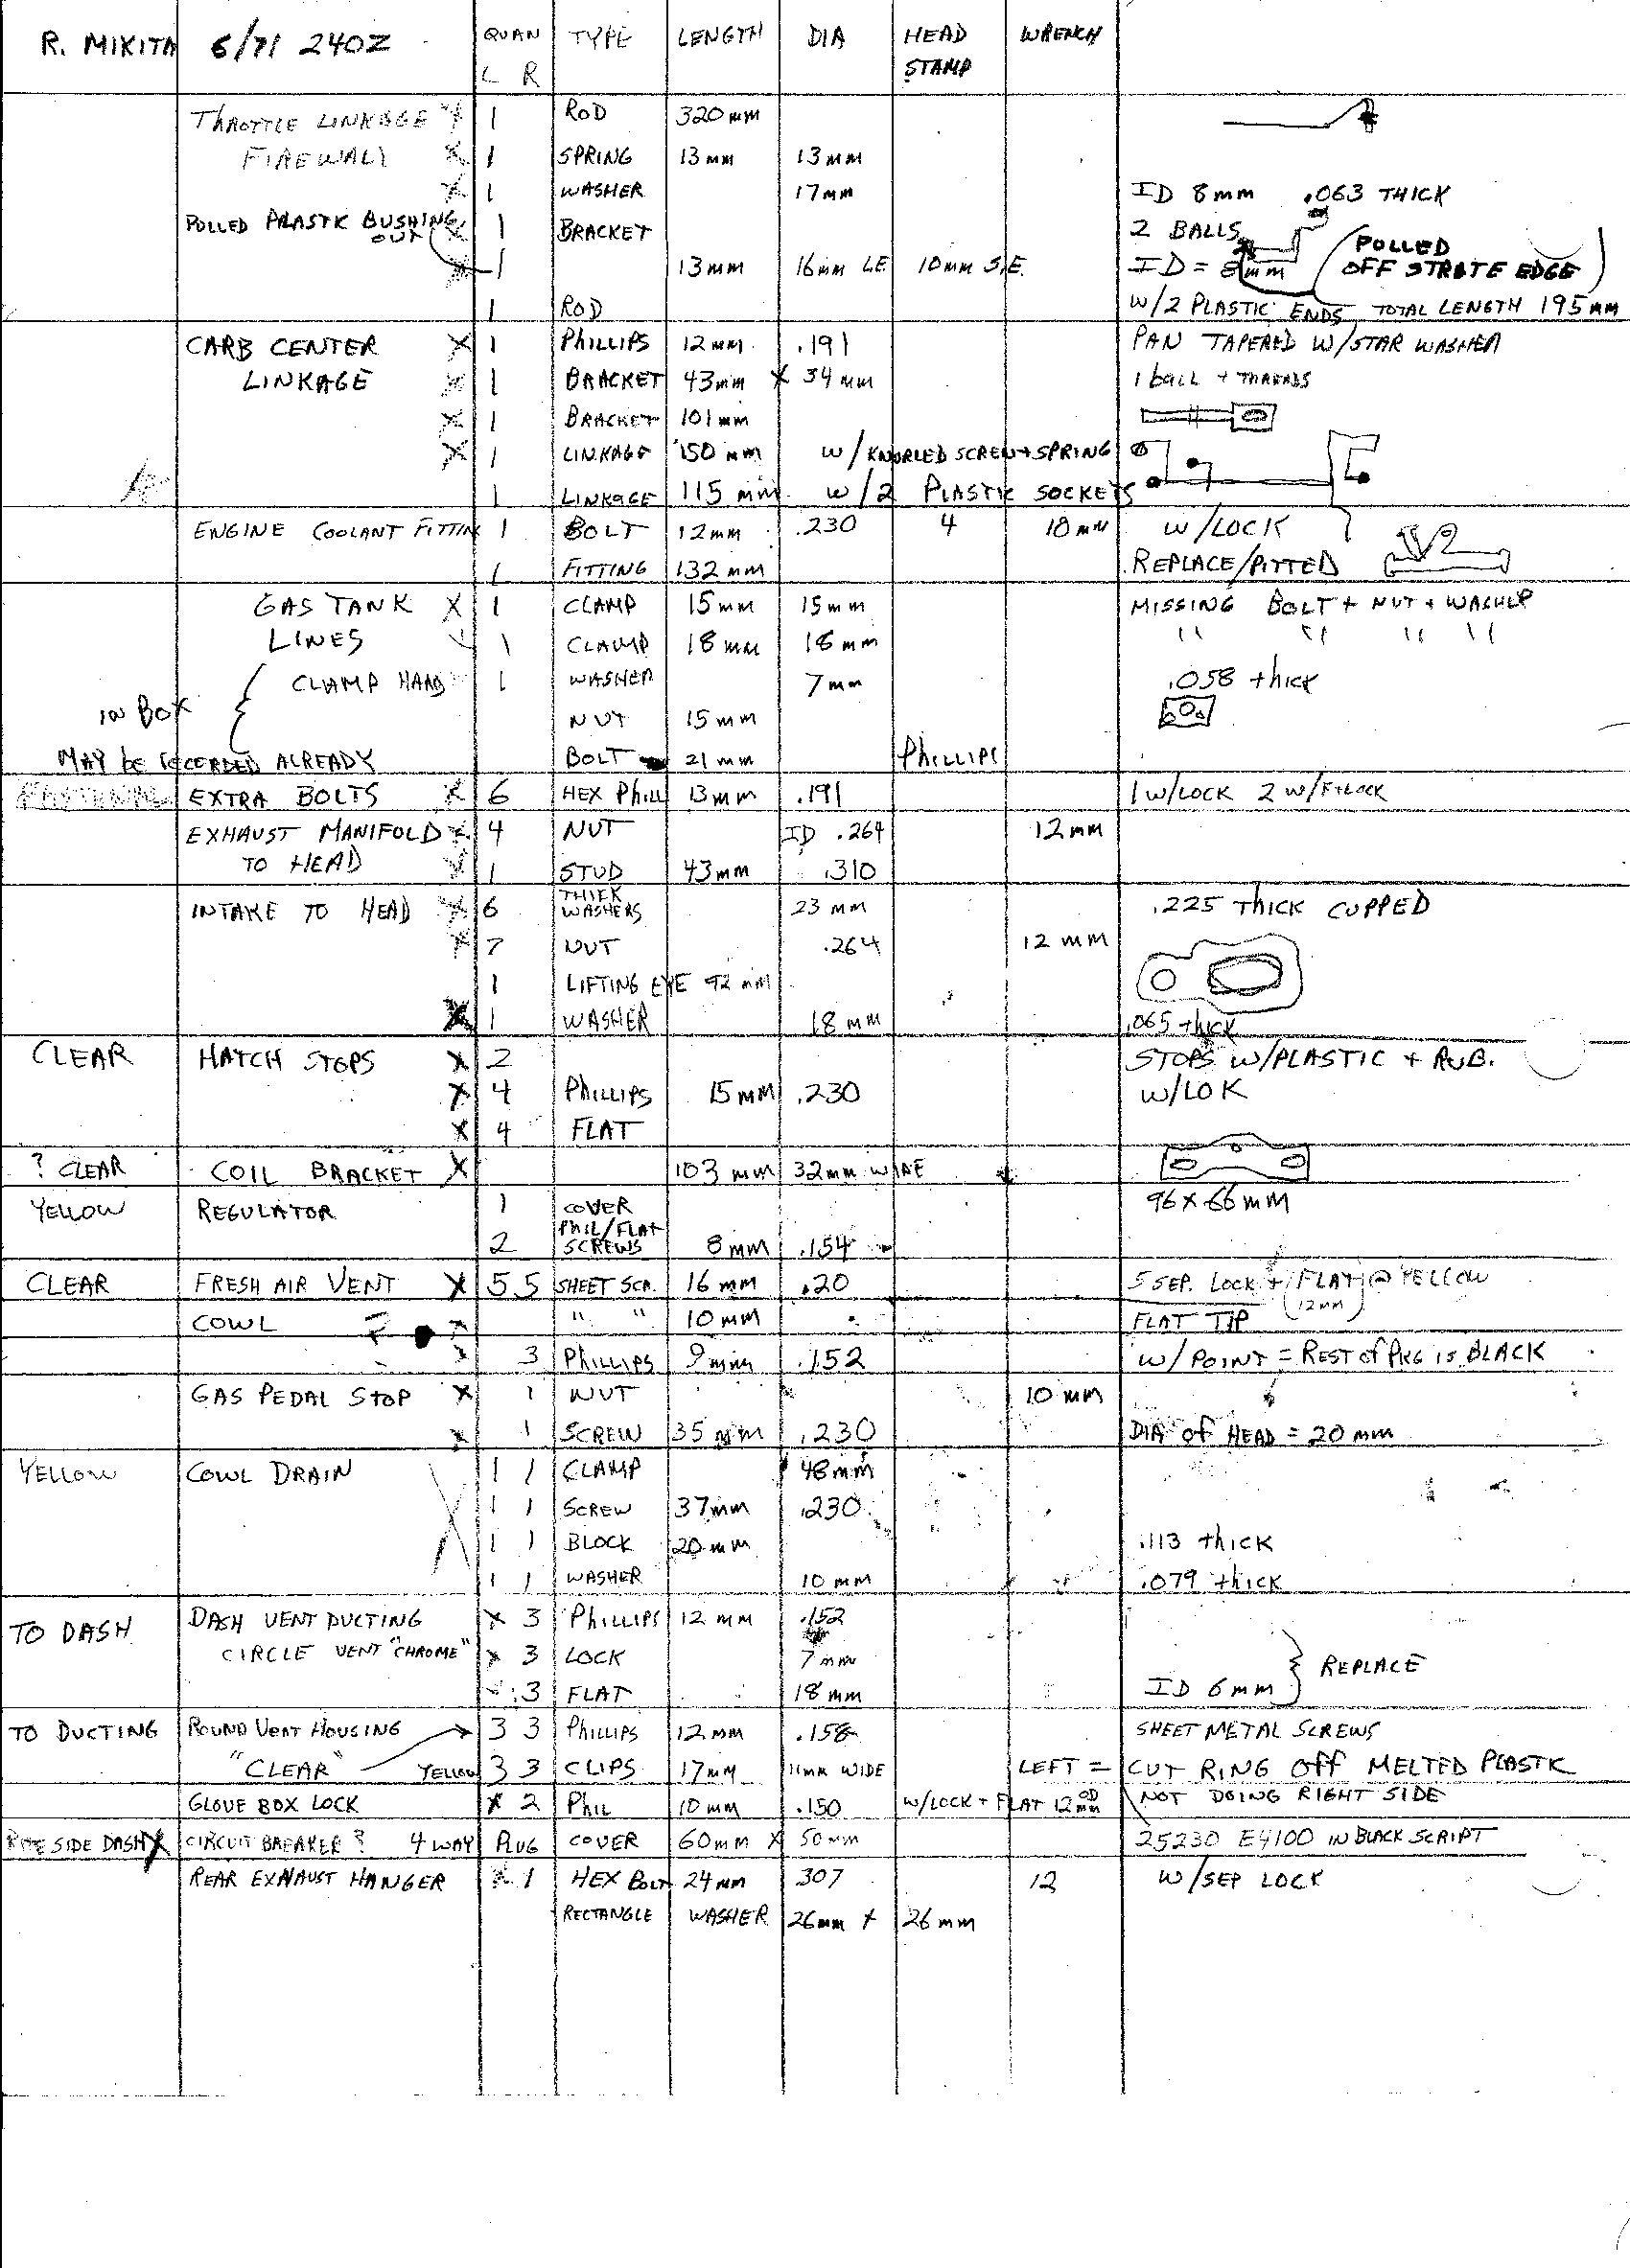 R. MIKITA 6/71 240Z QUAN TYPE LENGTH DIA HEAD WRENCH
L R STAMP
THROTTLE LINKAGE X 1 ROD 320mm
FIREWALL X 1 SPRING 13mm 13mm
X 1 WASHER 17mm ID 8mm .063 THICK
PULLED PLASTK BUSHING X 1 BRACKET 2 BALLS PULLED
OUT X 1 13mm 16mm LE 10mm S.E. ID = 8mm OFF STRATE EDGE
1 ROD W/2 PLASTIC ENDS TOTAL LENGTH 195mm
CARB CENTER X 1 PHILLIPS 12mm .191 PAN TAPERED W/STAR WASHER
LINKAGE X 1 BRACKET 43mm X 34mm 1 ball + THREADS
X 1 BRACKET 101mm
X 1 LINKAGE 150mm W/KNURLED SCREW+SPRING
1 LINKAGE 115mm W/2 PLASTIC SOCKETS
ENGINE COOLANT FITTIN 1 BOLT 12mm .230 4 10mm W/LOCK
1 FITTING 132mm REPLACE/PITTED
GAS TANK X 1 CLAMP 15mm 15mm MISSING BOLT + NUT + WASHER
LINES 1 CLAMP 18mm 18mm " " " "
CLAMP HARD 1 WASHER 7mm .058 thick
IN BOX NUT 15mm
MAY be RECORDED ALREADY BOLT 21mm PHILLIPS
EXTRA BOLTS X 6 HEX PHILL 13mm .191 1 W/LOCK 2 W/F+LOCK
EXHAUST MANIFOLD X 4 NUT ID .264 12mm
TO HEAD X 1 STUD 43mm .310
INTAKE TO HEAD X 6 THICK WASHERS 23mm .225 THICK CUPPED
X 7 NUT .264 12mm
1 LIFTING EYE 92mm
X 1 WASHER 18mm .065 thick
CLEAR HATCH STOPS X 2 STOPS W/PLASTIC + RUB.
X 4 PHILLIPS 15mm .230 W/LOK
X 4 FLAT
? CLEAR COIL BRACKET X 103mm 32mm WIDE
YELLOW REGULATOR 1 COVER 96 X 66mm
2 PHIL/FLAT SCREWS 8mm .154
CLEAR FRESH AIR VENT X 5 5 SHEET SCR. 16mm .20 5 SEP. LOCK + FLAT @ YELLOW
(12mm)
COWL " " 10mm FLAT TIP
3 PHILLIPS 9mm .152 W/POINT = REST of PKG IS BLACK
GAS PEDAL STOP X 1 NUT 10mm
X 1 SCREW 35mm .230 DIA of HEAD = 20mm
YELLOW COWL DRAIN 1 1 CLAMP 48mm
X 1 1 SCREW 37mm .230
1 1 BLOCK 20mm .113 thick
1 1 WASHER 10mm .079 thick
TO DASH DASH VENT DUCTING X 3 PHILLIPS 12mm .152
CIRCLE VENT "CHROME" X 3 LOCK 7mm REPLACE
3 FLAT 18mm ID 6mm
TO DUCTING ROUND VENT HOUSING 3 3 PHILLIPS 12mm .158 SHEET METAL SCREWS
"CLEAR" YELLOW 3 3 CLIPS 17mm 11mm WIDE LEFT = CUT RING OFF MELTED PLASTK
GLOVE BOX LOCK X 2 PHIL 10mm .150 W/LOCK + FLAT 12mm OD NOT DOING RIGHT SIDE
RITE SIDE DASH X CIRCUIT BREAKER? 4 WAY PLUG COVER 60mm X 50mm 25230 E4100 IN BLACK SCRIPT
REAR EXHAUST HANGER X 1 HEX BOLT 24mm 307 12 W/SEP LOCK
RECTANGLE WASHER 26mm + 26mm